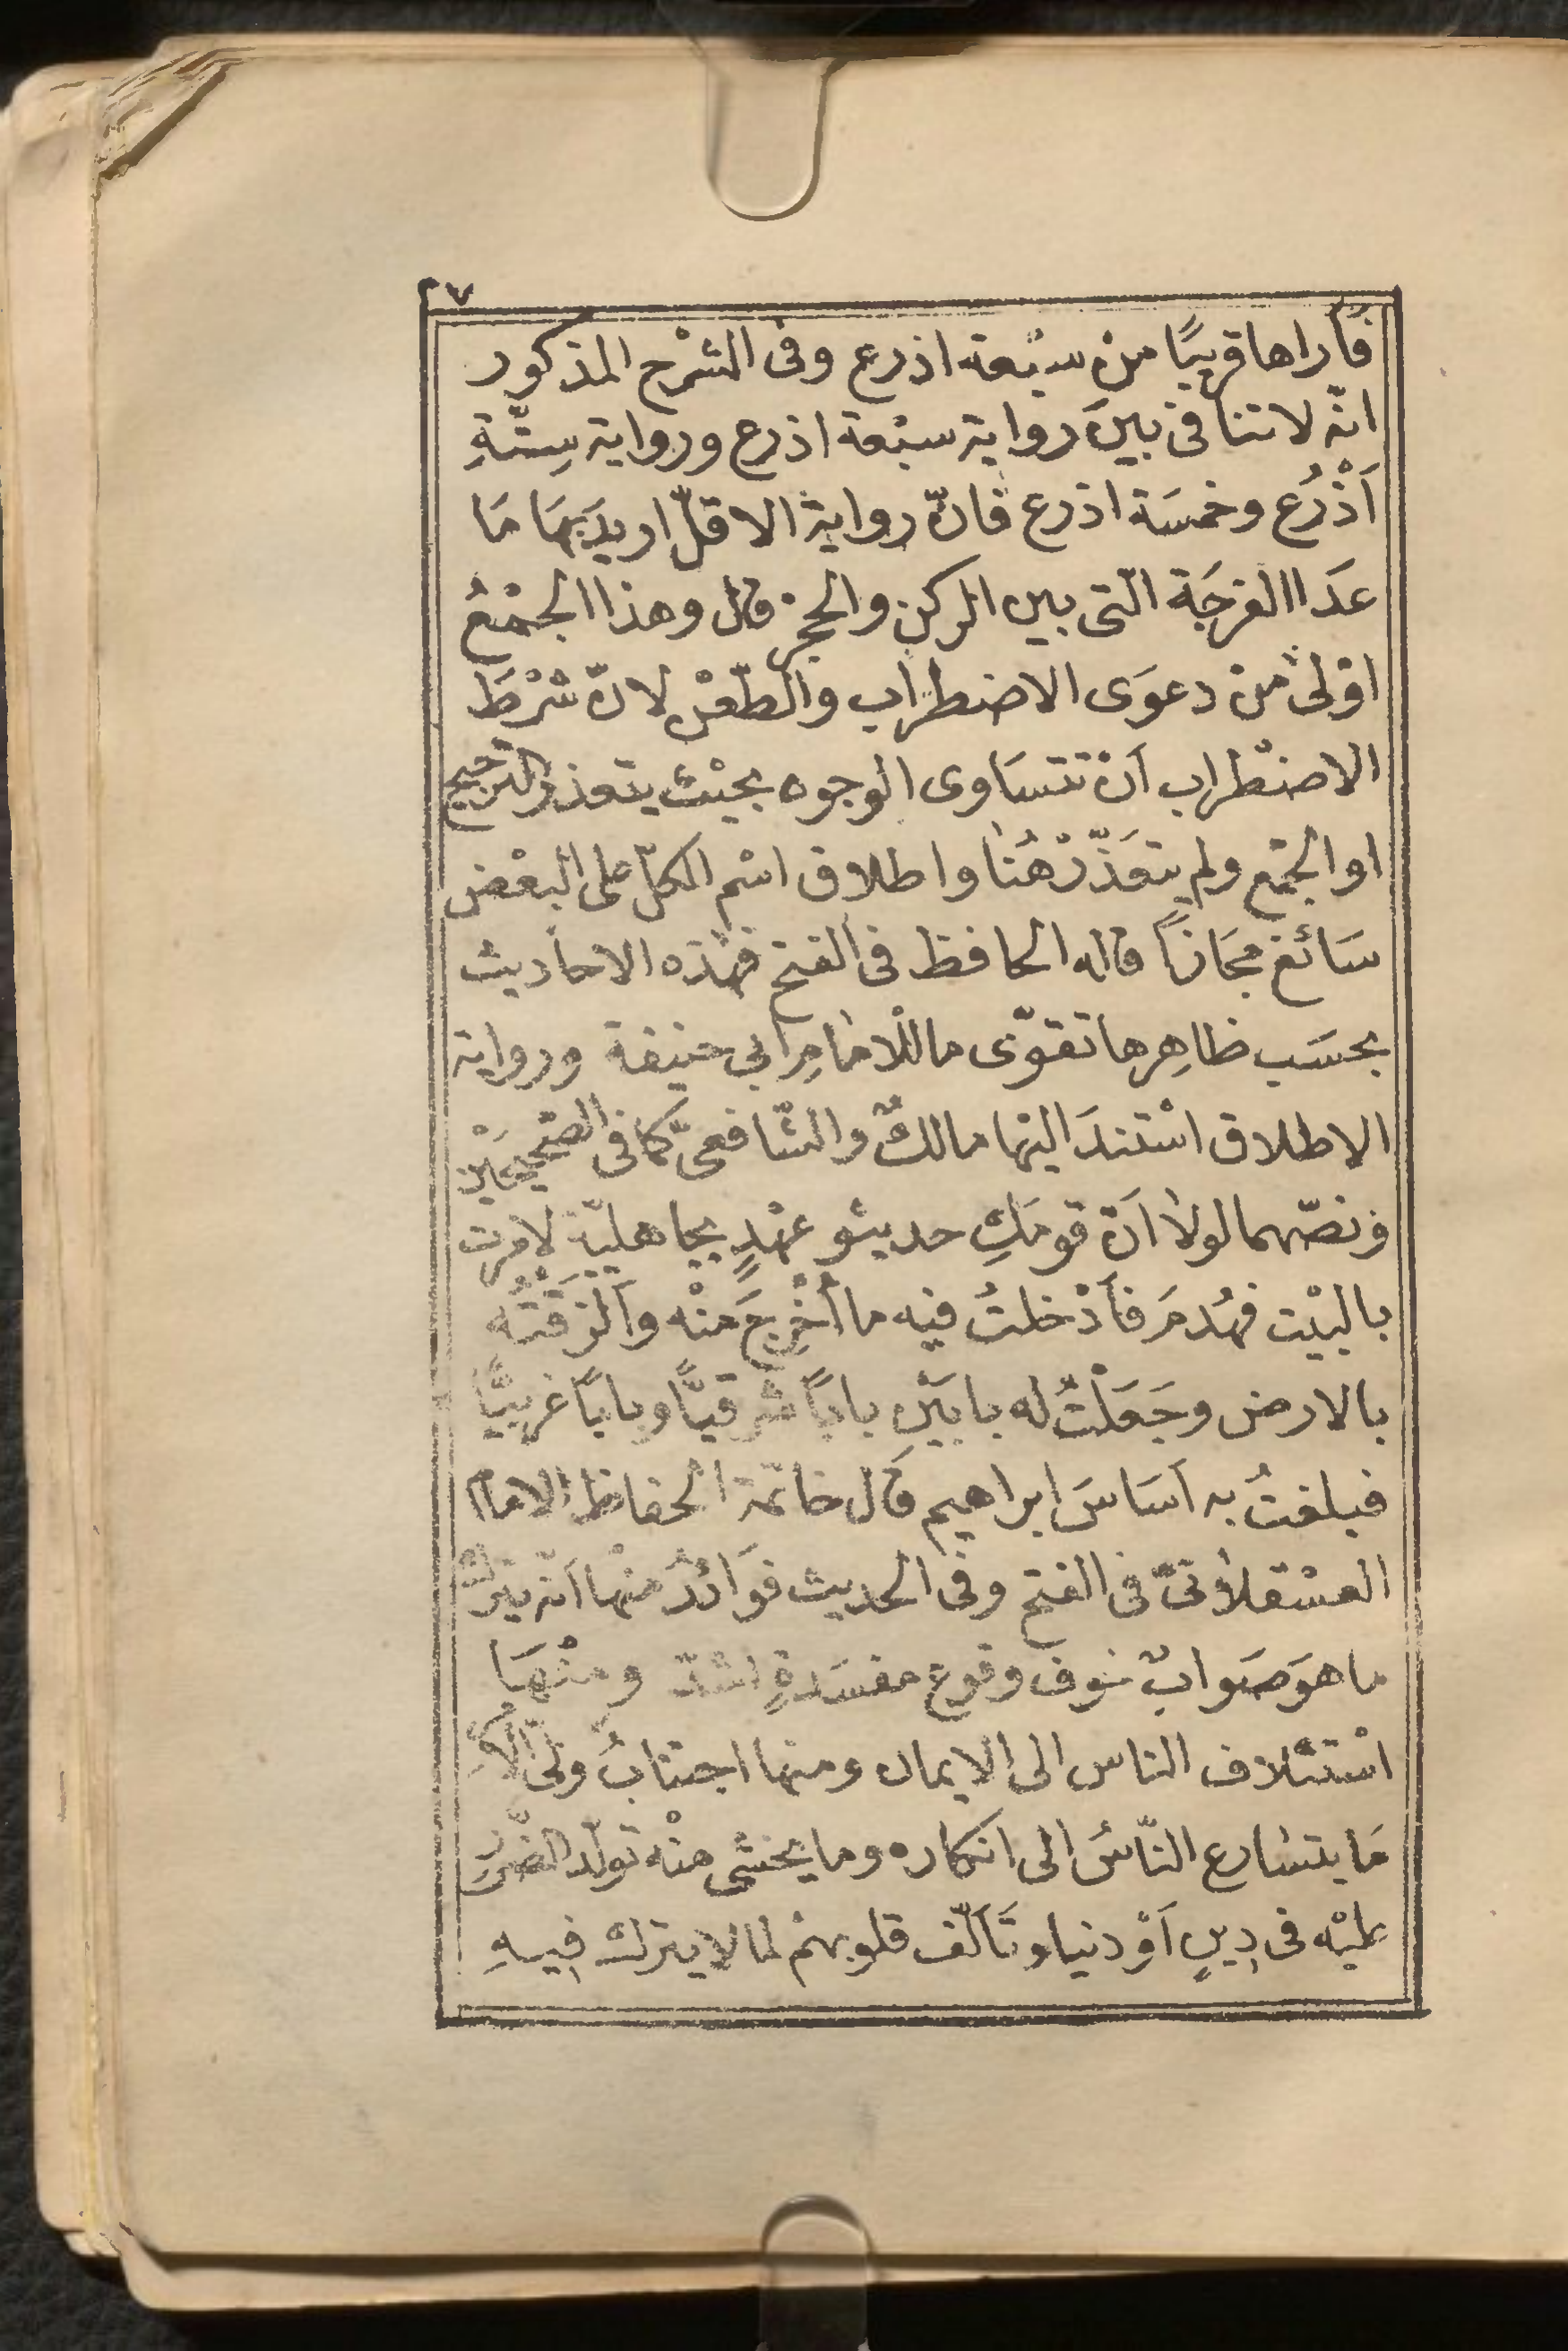 ٢٧
فأراها قريبًا منْ سبْعة اذرع وفى الشرْح المذكور
انّه لا تنافى بينَ رواية سبْعة اذرع ورواية سِتّةِ
اَذْرُع وخمسَة اذرع فانّ رواية الاقلّ اريدَ بهَا مَا
عَدَا الفرجَة الّتى بين الركن والحجر قال وهذا الجمْعُ
اوْلىٰ من دعوَى الاضطراب والطّعْن لانّ شرْطَ
الاضْطراب اَنْ تتسَاوى الوجوه بحيْث يتعذر الترجيح
او الجمْع ولم يتعَذّرْ هُنا واطلاق اسْم الكلّ على البعْض
سَائغ مجَازاً قاله الحافظ فى الفتح فهذه الاحاديث
بحسَب ظاهِرها تقوّى ما للامامِ ابي حنيفة ورواية
الاطلاق اسْتندَ اليْها مالكٌ والشّافعىّ كما فى الصّحيحيْن
ونصّهما لولا اَنّ قومَكِ حديثو عهْدٍ بجاهليّة لامرت
بالبيْت فهُدمَ فأدْخلتُ فيه ما أخْرِجَ منْه واَلزقْتُه
بالارض وجَعَلْتُ له بابَيْن بابًا شرقيًّا وبابًا غربيًّا
فبلغتُ به اَسَاسَ ابراهيم قال خاتمة الحفاظ الامام
العسْقلانىّ فى الفتح وفى الحديث فوَائدُ منْها انّه يترك
ما هوَ صَوابٌ خوف وقوع مفسَدةٍ اشدّ ومنْهَا
اسْتئلاف الناس الى الايمان ومنها اجتنابُ ولىّ الامْرِ
مَا يتسَارع النّاسُ الى انكاره وما يخشى منْه تولّد الضّررَ
عليْه فى دِينٍ اَوْ دنيا وتَاَلّف قلوبهمْ لما لا يترك فِيهِ